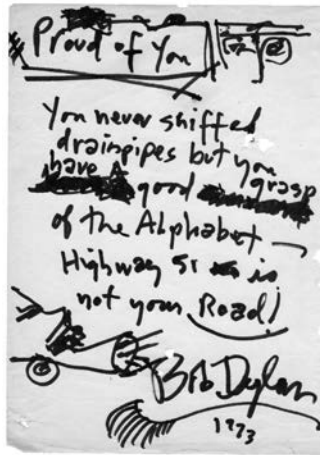 Proud of You
You never shiffed
drainpipes but you
have A good grasp
of the Alphabet —
Highway 51 is
not your Road!
Bob Dylan
1973